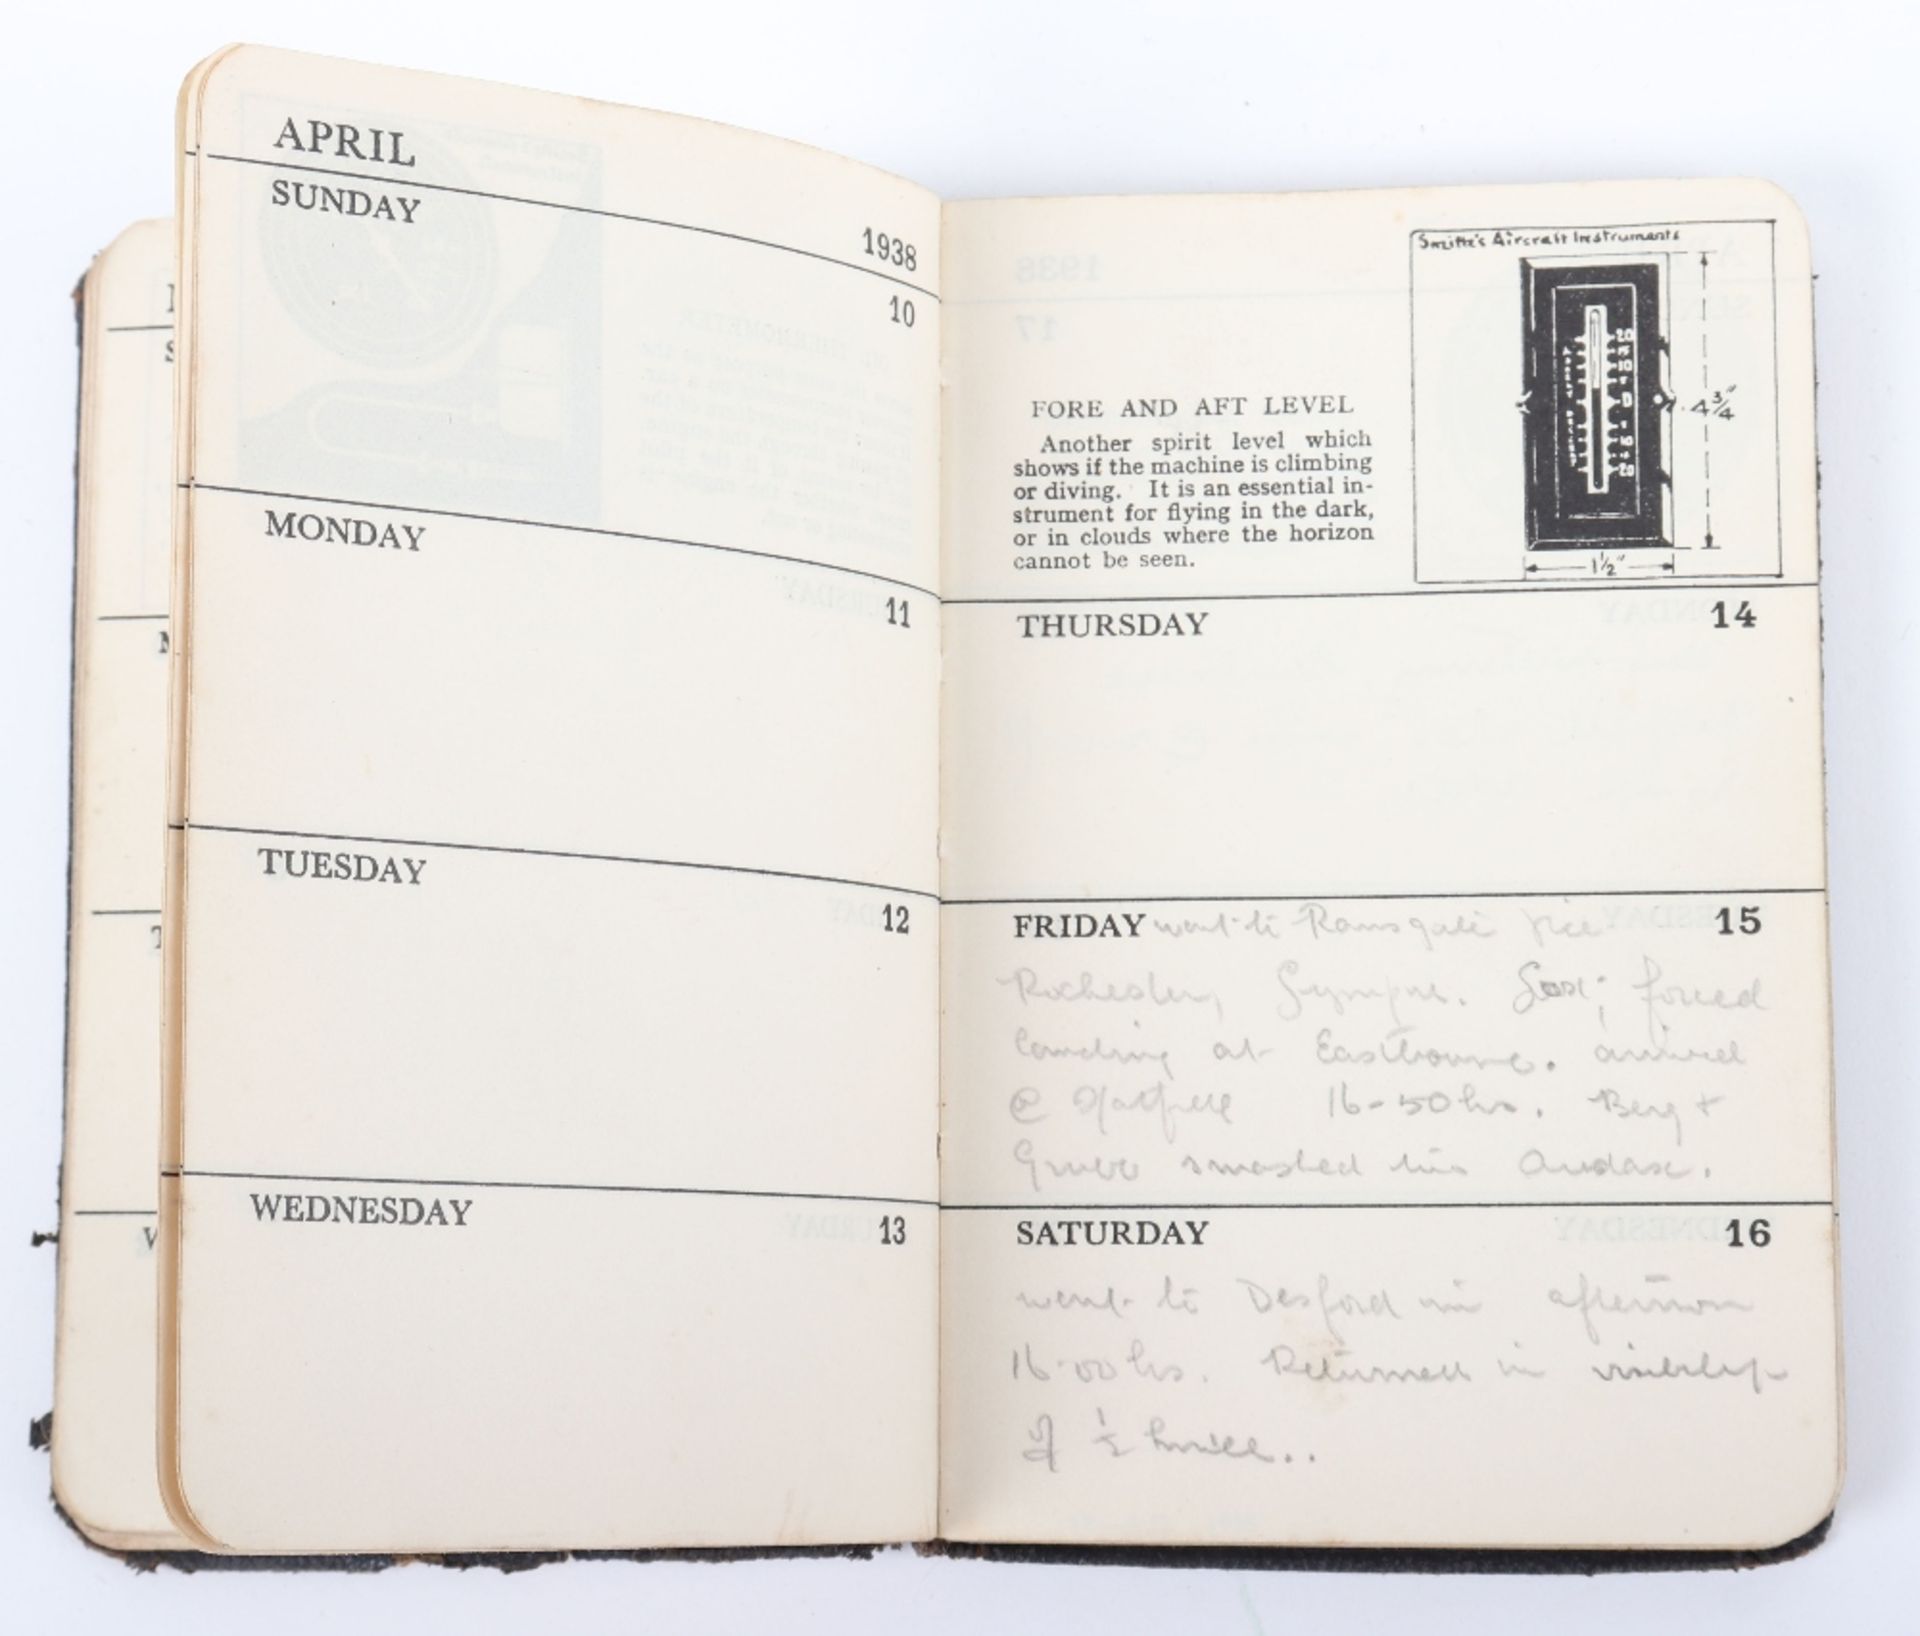 APRIL
SUNDAY
1938
10
MONDAY
11
TUESDAY
12
WEDNESDAY
13
Smith's Aircraft Instruments
20
10
0
20
4 3/4"
1 1/2"
FORE AND AFT LEVEL
Another spirit level which
shows if the machine is climbing
or diving. It is an essential in-
strument for flying in the dark,
or in clouds where the horizon
cannot be seen.
THURSDAY 14
FRIDAY went to Ramsgate 15
Rochester, Lympne. forced
landing at Eastbourne. arrived
@ Hatfield 16-50 hrs. Berg +
smashed his Audax.
SATURDAY 16
went to Desford in afternoon
16-00 hrs. Returned in visibility
of 1/2 mile..